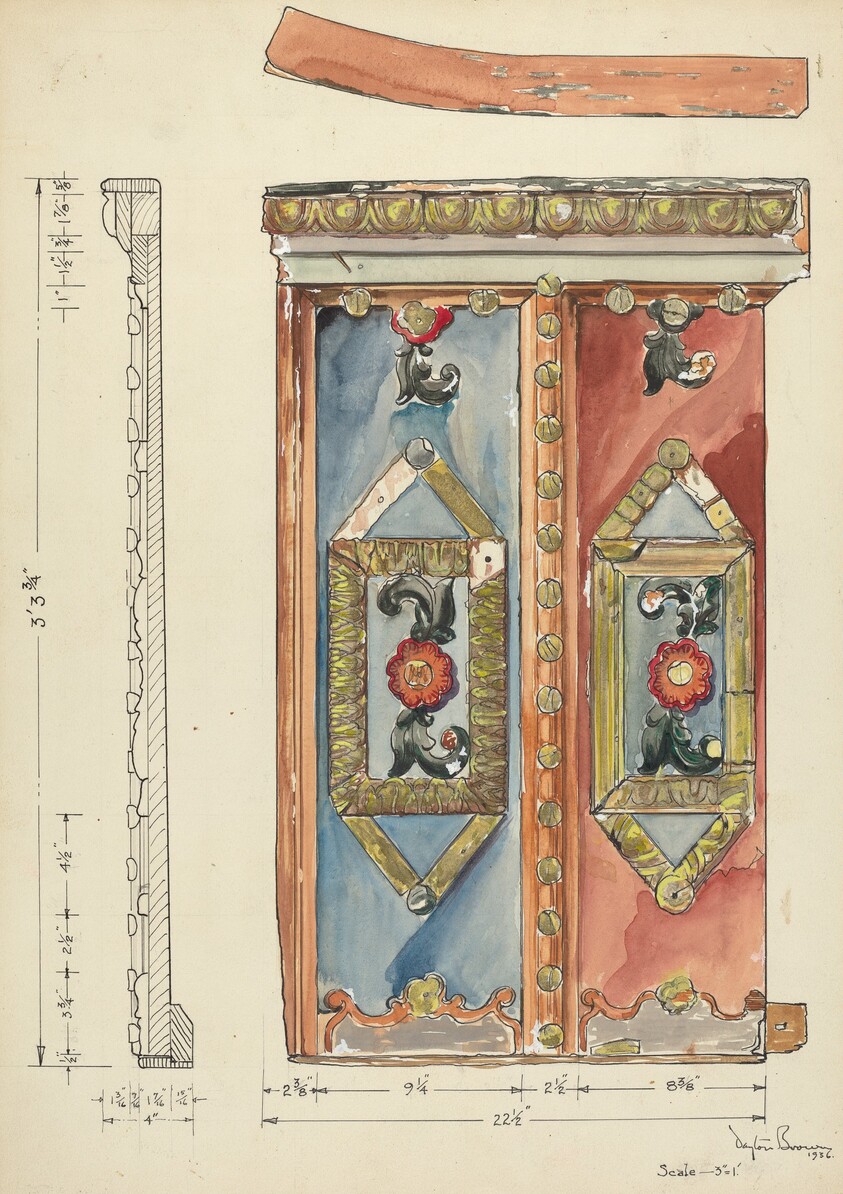 5/8"
1 7/8"
3/4"
1 1/2"
1"
3' 3 3/4"
4 1/2"
2 1/2"
3 3/4"
1/2"
1 3/16"
1 7/16"
15/16"
4"
2 3/8"
9 1/4"
2 1/2"
8 3/8"
22 1/2"
Dayton Brown
1936.
Scale — 3"=1'